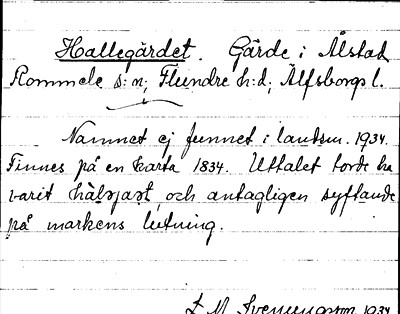 Hallegärdet. Gärde i Ålstad
Rommele s:n; Flundre h:d; Älfsborgs l.
Namnet ej funnet i landsm. 1934.
Finnes på en karta 1834. Uttalet torde ha
varit och antagligen syftande
på markens lutning.
1934